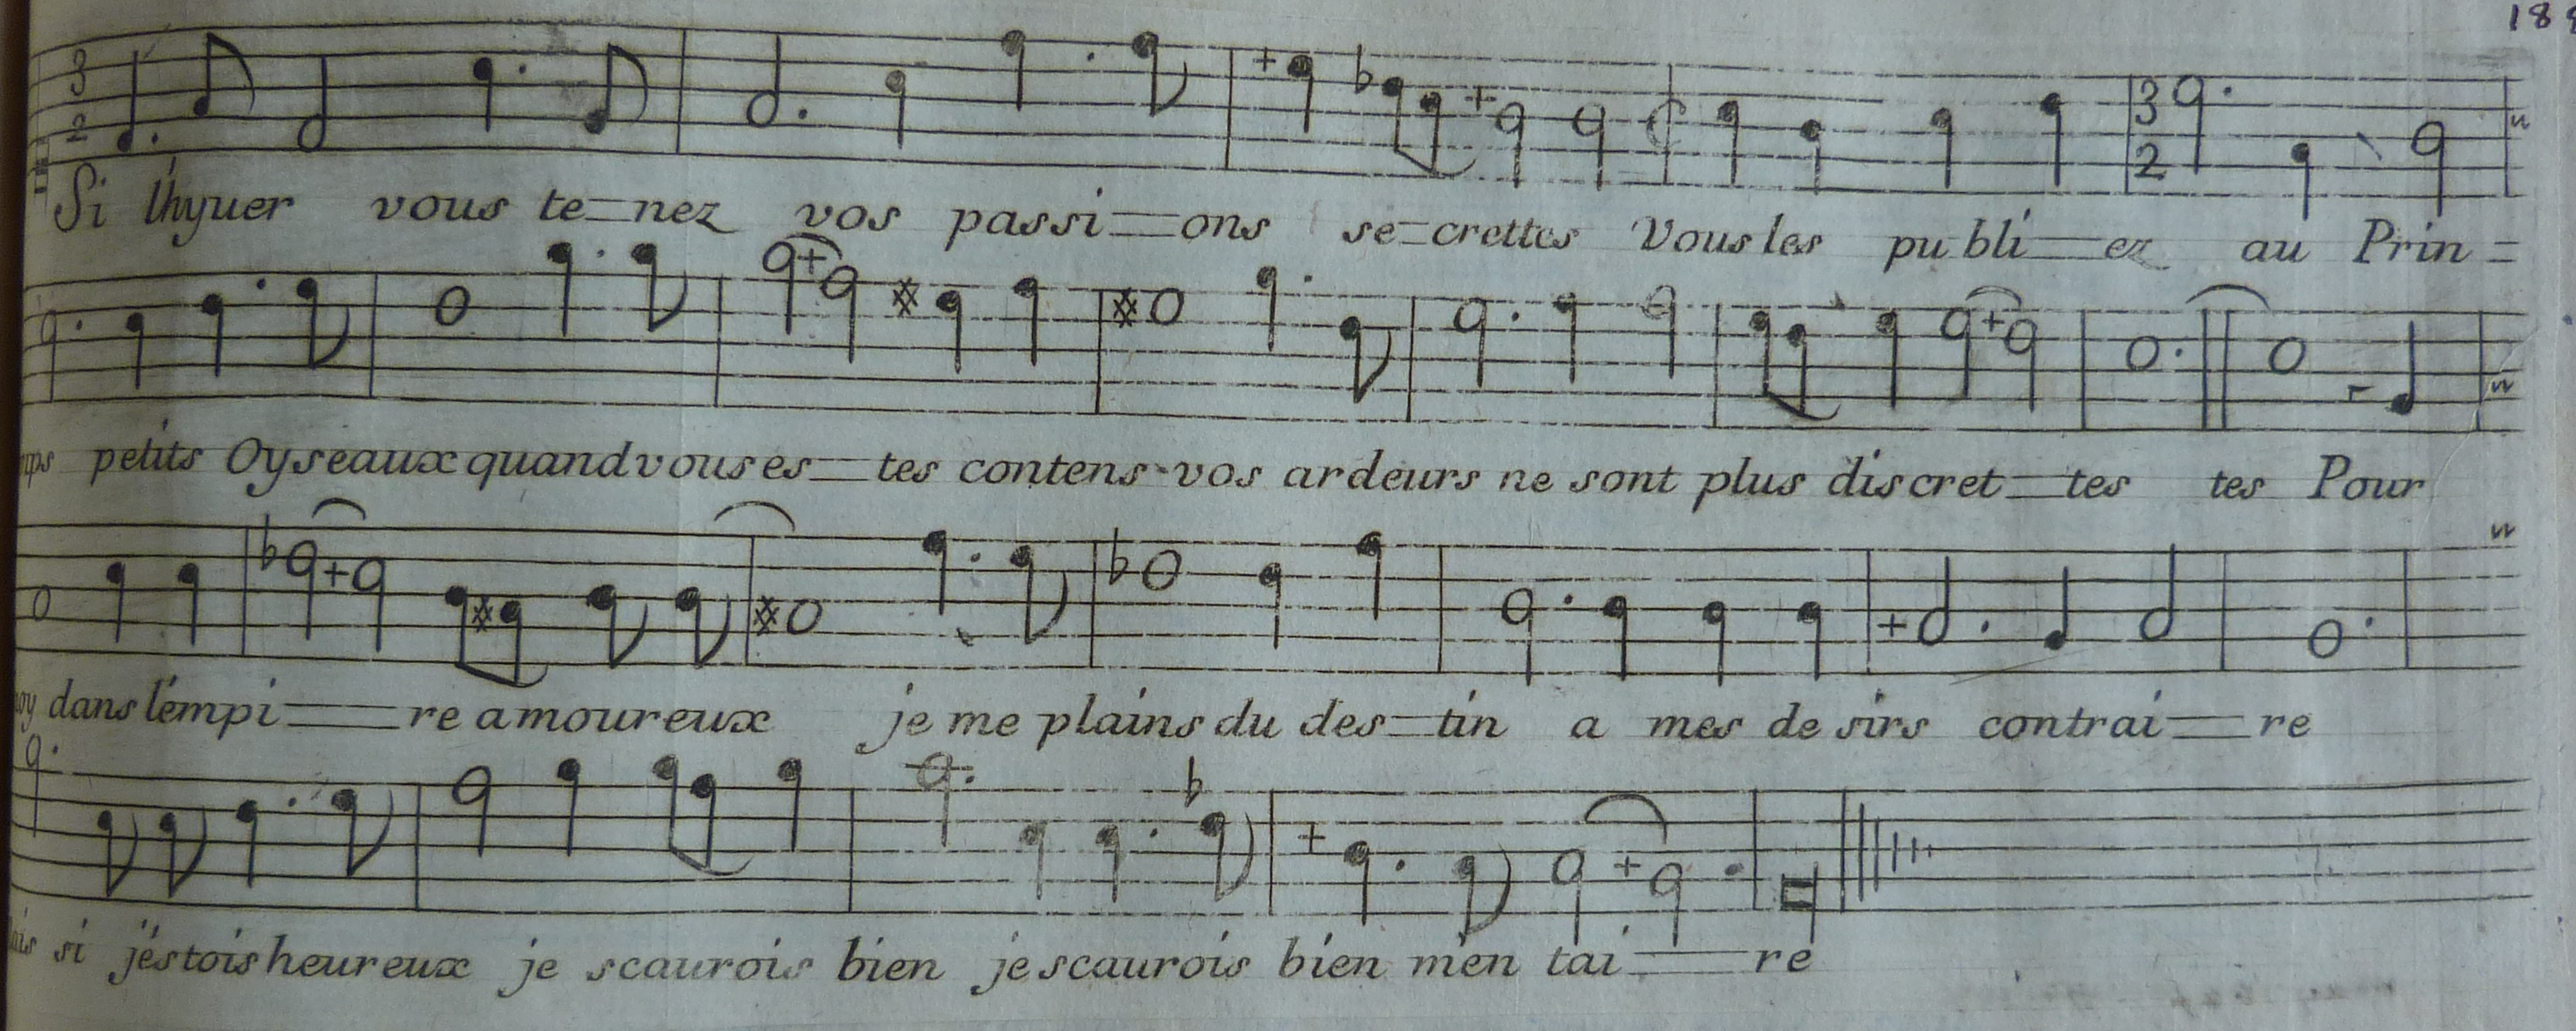 188
3 2
Si l'hyuer vous te=nez vos passi=ons se=crettes Vous les pu bli=ez au Prin=
3 2
petits Oyseaux quand vous es=tes contens vos ardeurs ne sont plus discret=tes tes Pour
dans l'empi=re amoureux je me plains du des=tin a mes desirs contrai=re
si j'éstois heureux je scaurois bien je scaurois bien m'en tai=re